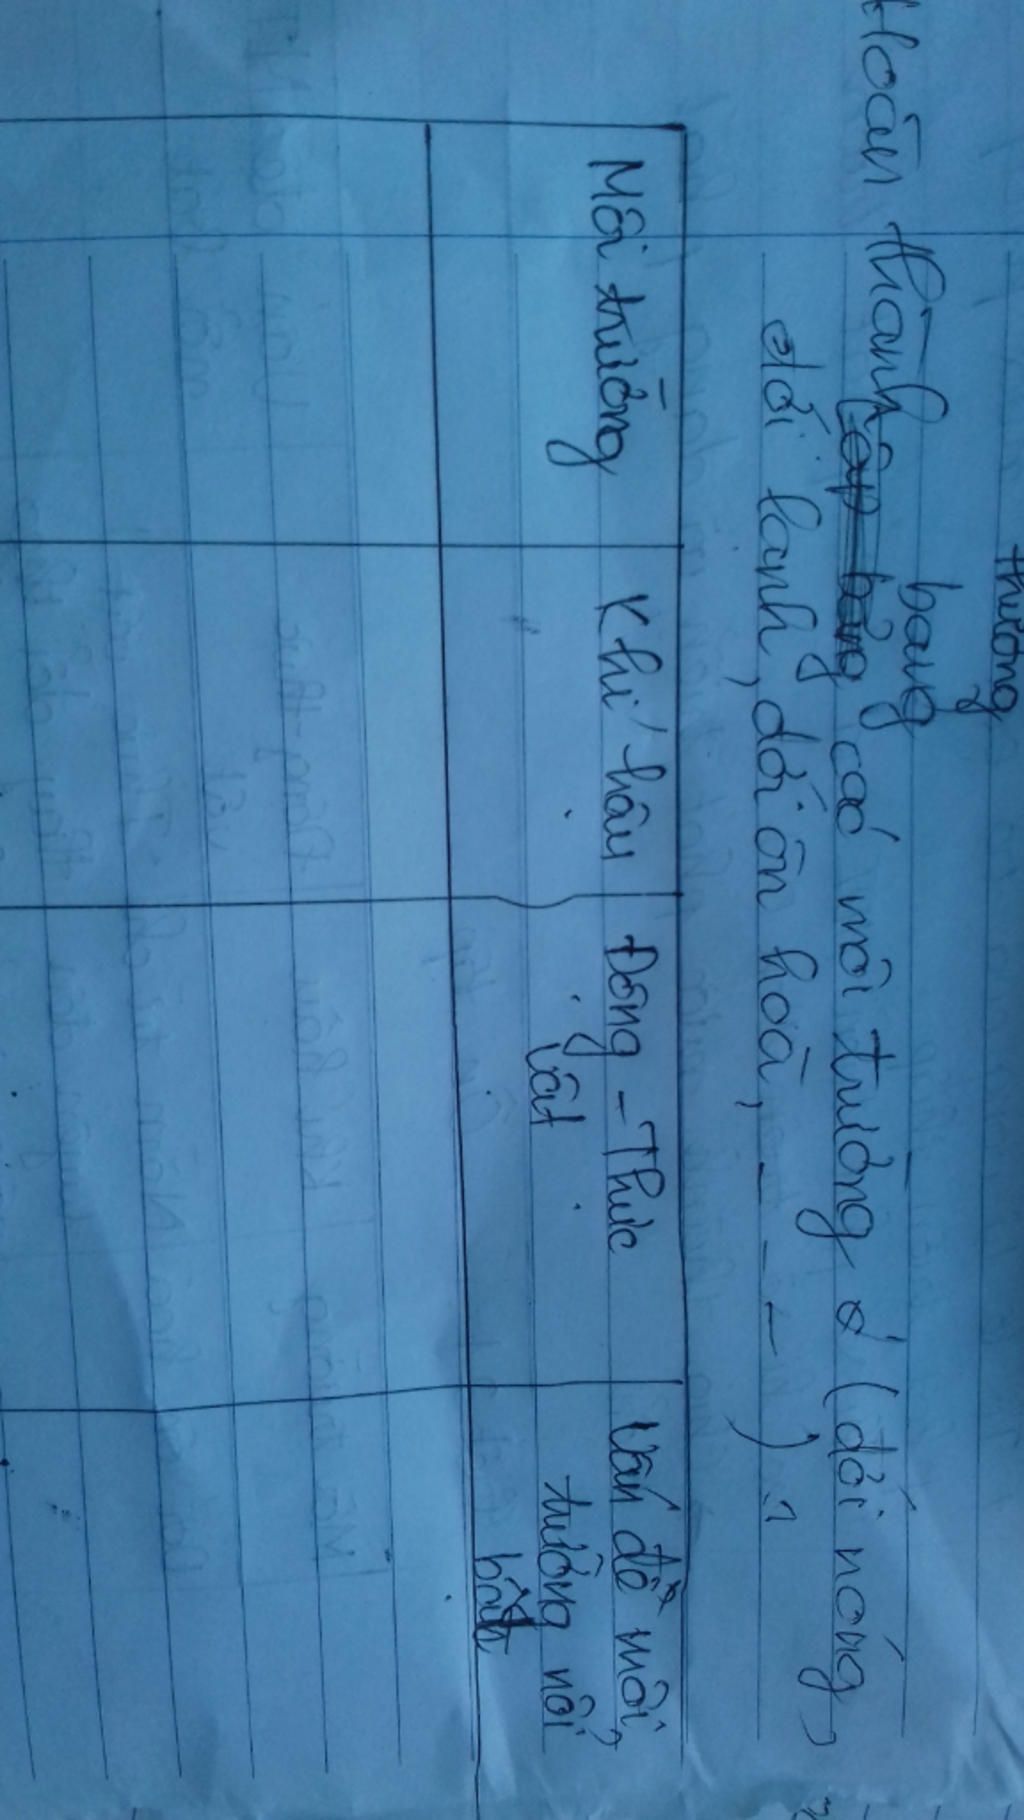 thường
bảng
Hoàn thành các môi trường ở (đới nóng,
đới lạnh, đới ôn hoà, - - - ) ?
Môi trường
Khí hậu
Động - Thực
vật
Vấn đề môi
trường nổi